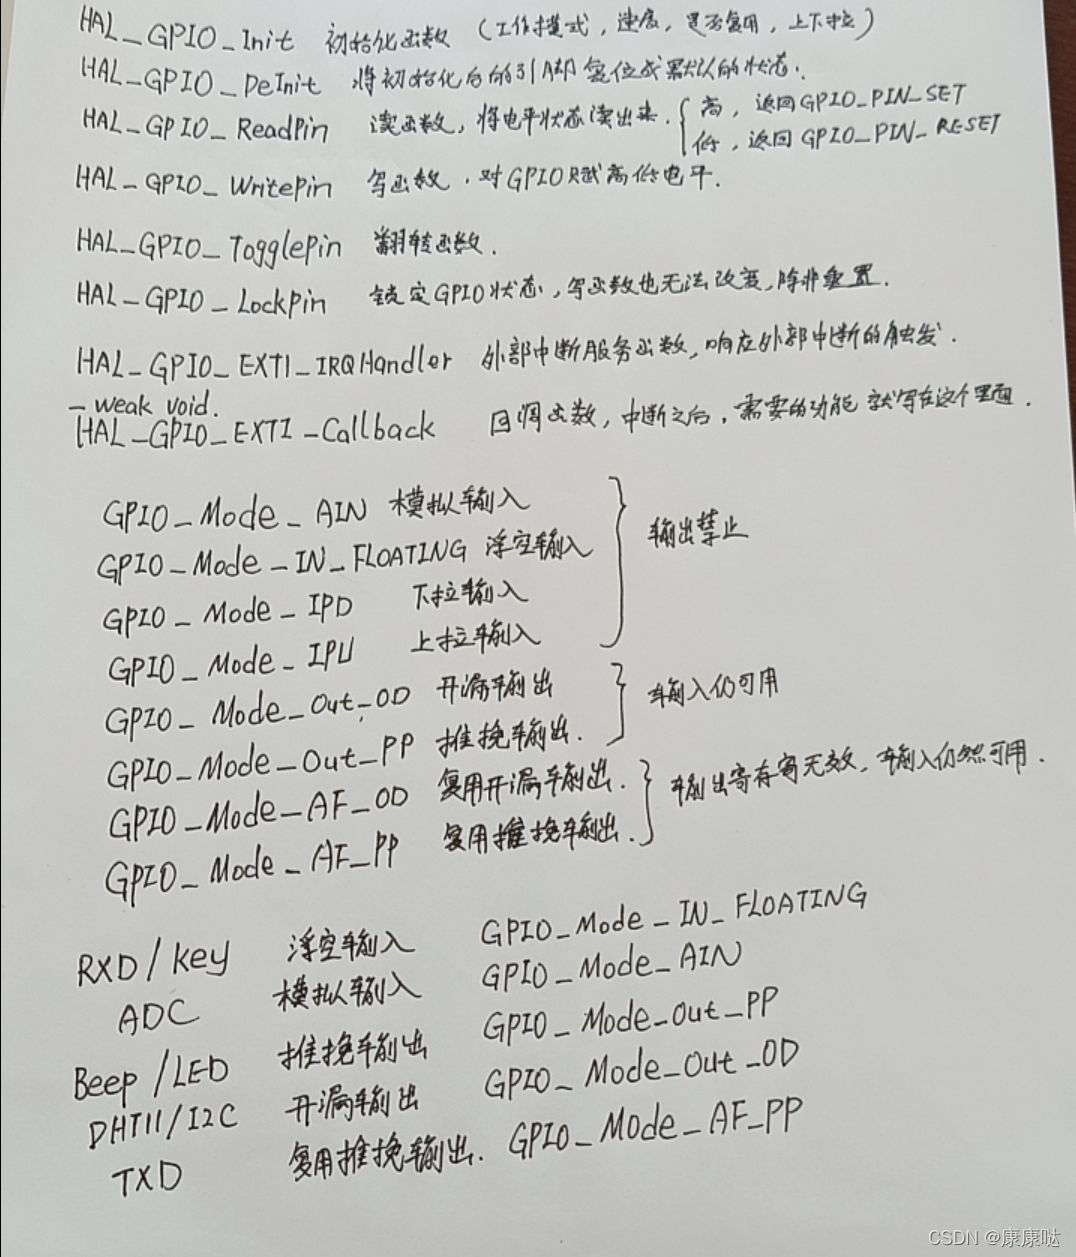 HAL_GPIO_Init 初始化函数 (工作模式，速度，是否复用，上下拉)
HAL_GPIO_DeInit 将初始化后的引脚复位成默认的状态.
HAL_GPIO_ReadPin 读函数，将电平状态读出来. { 高，返回GPIO_PIN_SET
低，返回GPIO_PIN_RESET
HAL_GPIO_WritePin 写函数，对GPIO赋高低电平.
HAL_GPIO_TogglePin 翻转函数.
HAL_GPIO_LockPin 锁定GPIO状态，写函数也无法改变，除非重置.
HAL_GPIO_EXTI_IRQHandler 外部中断服务函数，响应外部中断的触发.
_weak void.
HAL_GPIO_EXTI_Callback 回调函数，中断之后，需要的功能就写在这个里面.
GPIO_Mode_AIN 模拟输入
GPIO_Mode_IN_FLOATING 浮空输入 } 输出禁止
GPIO_Mode_IPD 下拉输入
GPIO_Mode_IPU 上拉输入
GPIO_Mode_Out_OD 开漏输出 } 输入仍可用
GPIO_Mode_Out_PP 推挽输出.
GPIO_Mode_AF_OD 复用开漏输出. } 输出寄存器无效，输入仍然可用.
GPIO_Mode_AF_PP 复用推挽输出.
RXD/key 浮空输入 GPIO_Mode_IN_FLOATING
ADC 模拟输入 GPIO_Mode_AIN
Beep/LED 推挽输出 GPIO_Mode_Out_PP
DHT11/I2C 开漏输出 GPIO_Mode_Out_OD
TXD 复用推挽输出. GPIO_Mode_AF_PP
CSDN @康康哒